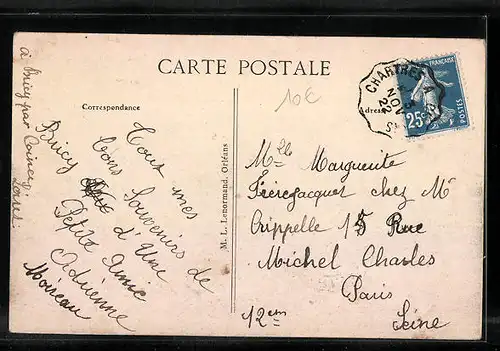 CARTE POSTALE
10€
Correspondance
Adresse
à bricy par Coinces
Loiret.
Bricy
Tout mes
bons Souvenirs de
d'une
Petite Amie
Adrienne
Moireau
M. L. Lenormand, Orléans
CHARTRES A
NOV
22
FRANÇAISE
25c
POSTES
Mlle Marguerite
Frèrejacques chez Mr
Crippelle 15 Rue
Michel Charles
Paris
12em Seine